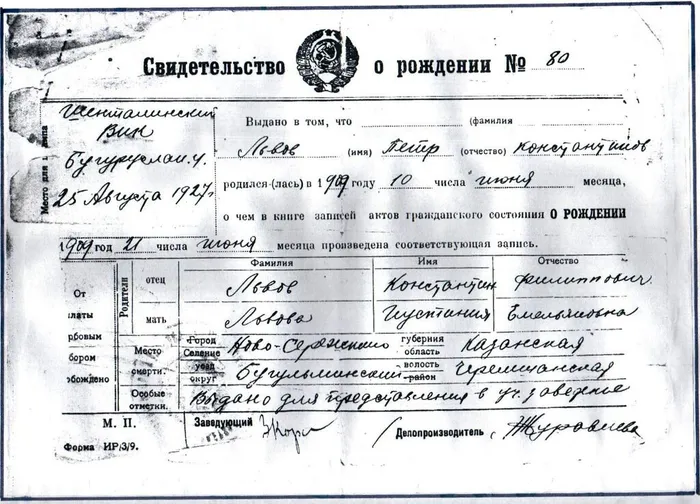 Свидетельство о рождении № 80
Шенталинский
Вик
Бугуруслан. у.
25 Августа 1927 г.
Место для
Выдано в том, что (фамилия
Львов (имя) Петр (отчество) Константинов
родился(-лась) в 1909 году 10 числа июня месяца,
о чем в книге записей актов гражданского состояния О РОЖДЕНИИ
1909 год 21 числа июня месяца произведена соответствующая запись.
Фамилия Имя Отчество
Родители
отец Львов Константин Филиппович
мать Львова Иустиния Емельяновна
От
латы
рбовым
бором
вобождено
Место
смерти.
Город
Селение Ново-Сережкино губерния
область Казанская
уезд
округ Бугульминский волость
район Черемшанская
Особые
отметки. Выдано для представления в
М. П. Заведующий Делопроизводитель Журавлева
Форма ИР/3/9.